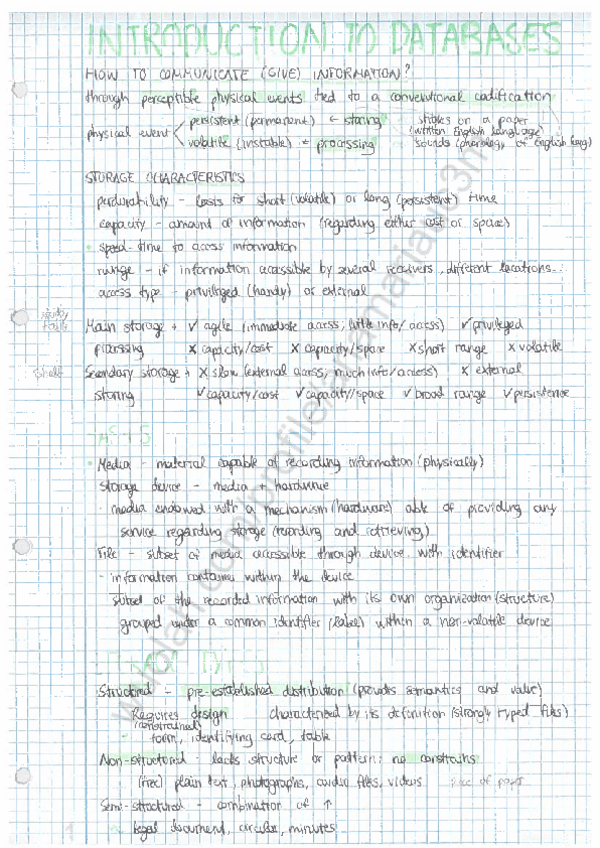 INTRODUCTION TO DATABASES
HOW TO COMMUNICATE (GIVE) INFORMATION?
through perceptible physical events tied to a conventional codification
physical event persistent (permanent) ← storing stikes on a paper (written English language)
volatile (instable) ← processing sounds (phonology of English lang)
STORAGE CHARACTERISTICS
perdurability - lasts for short (volatile) or long (persistent) time
capacity - amount of information (regarding either cost or space)
speed - time to access information
range - if information accessible by several receivers, different locations...
access type - privileged (handy) or external
Main storage + ✓ agile (immediate access, little info/access) ✓ privileged
processing ✗ capacity/cost ✗ capacity/space ✗ short range ✗ volatile
Shelf
Secondary storage + ✗ slow (external access, much info/access) ✗ external
storing ✓ capacity/cost ✓ capacity/space ✓ broad range ✓ persistence
Media - material capable of recording information (physically)
storage device - media + hardware
media endowed with a mechanism (hardware) able of providing any
service regarding storage (recording and retrieving)
File - subset of media accessible through device with identifier
- information contains within the device
subset of the recorded information with its own organization (structure)
grouped under a common identifier (label) within a non-volatile device
Structured - pre-established distribution (provides semantics and value)
Requires design characterized by its definition (strongly typed files)
(constraints)
form, identifying card, table
Non-structured - lacks structure or pattern; no constrains
(free) plain text, photographs, audio files, videos piece of paper
Semi-structured - combination of ↑
legal document, circular, minutes